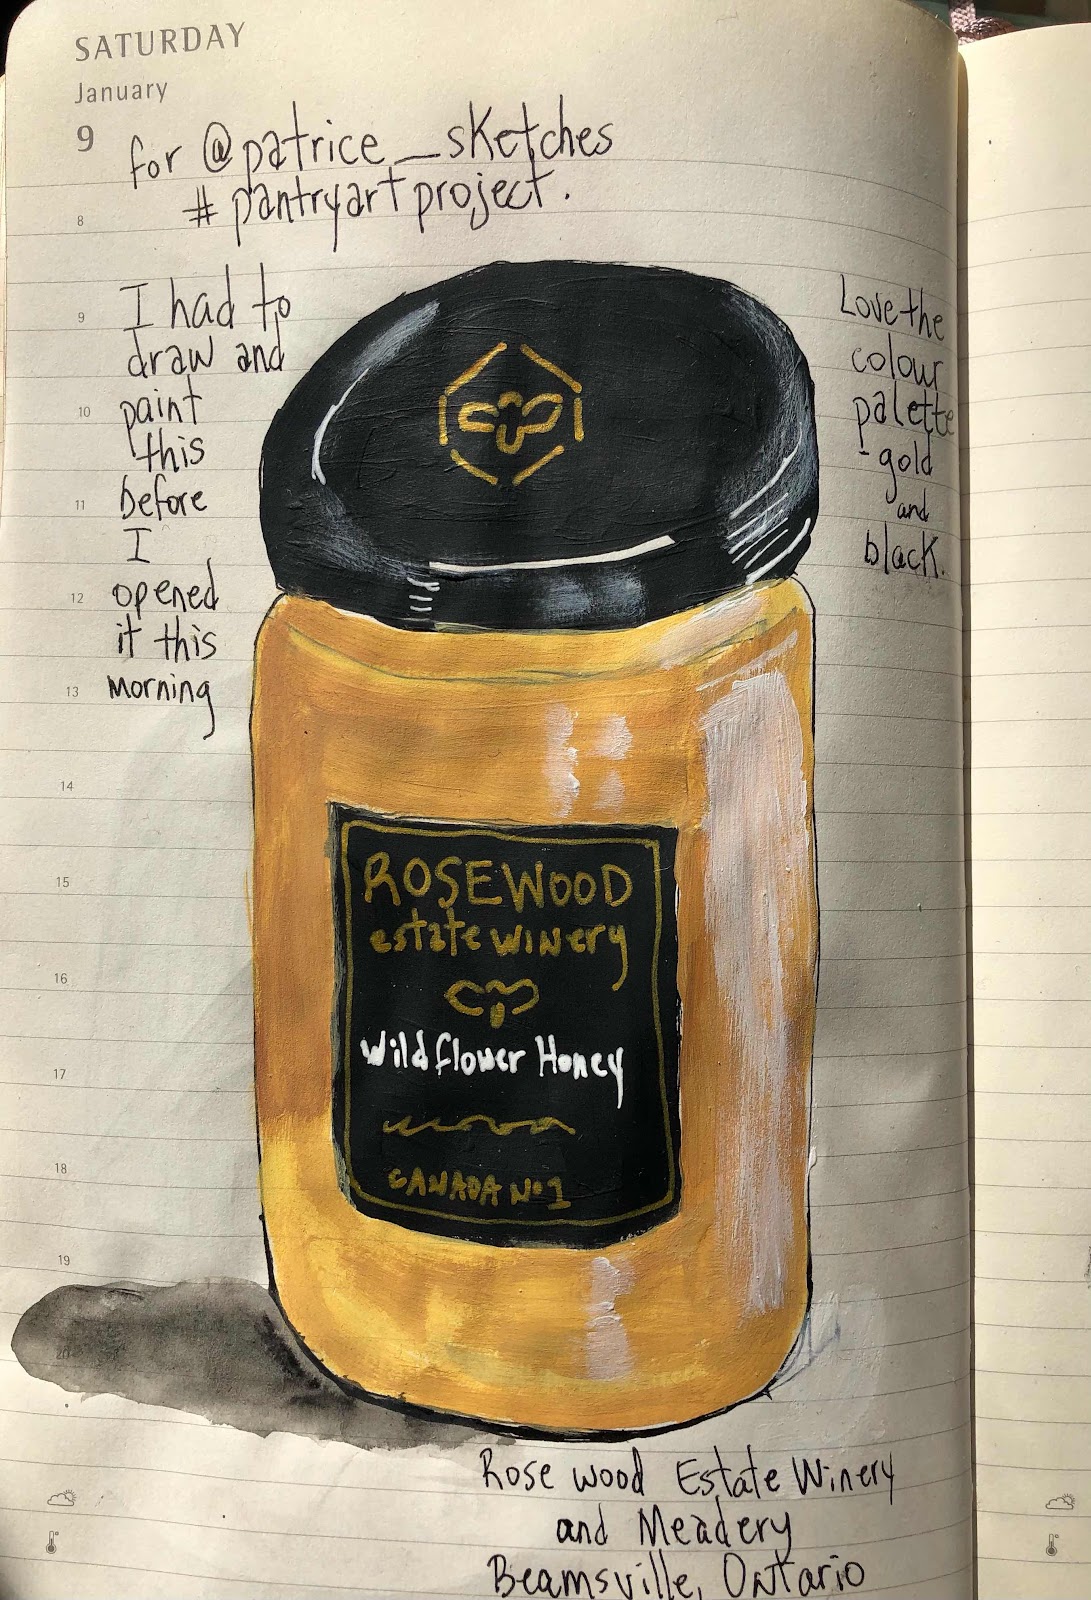 SATURDAY
January
9
for @patrice_sketches
# pantryartproject.
8
I had to
draw and
paint
this
before
I
opened
it this
morning
9
10
11
12
13
14
15
16
17
18
19
20
Love the
colour
palette
- gold
and
black.
ROSEWOOD
estate winery
Wildflower Honey
CANADA No 1
Rose wood Estate Winery
and Meadery
Beamsville, Ontario